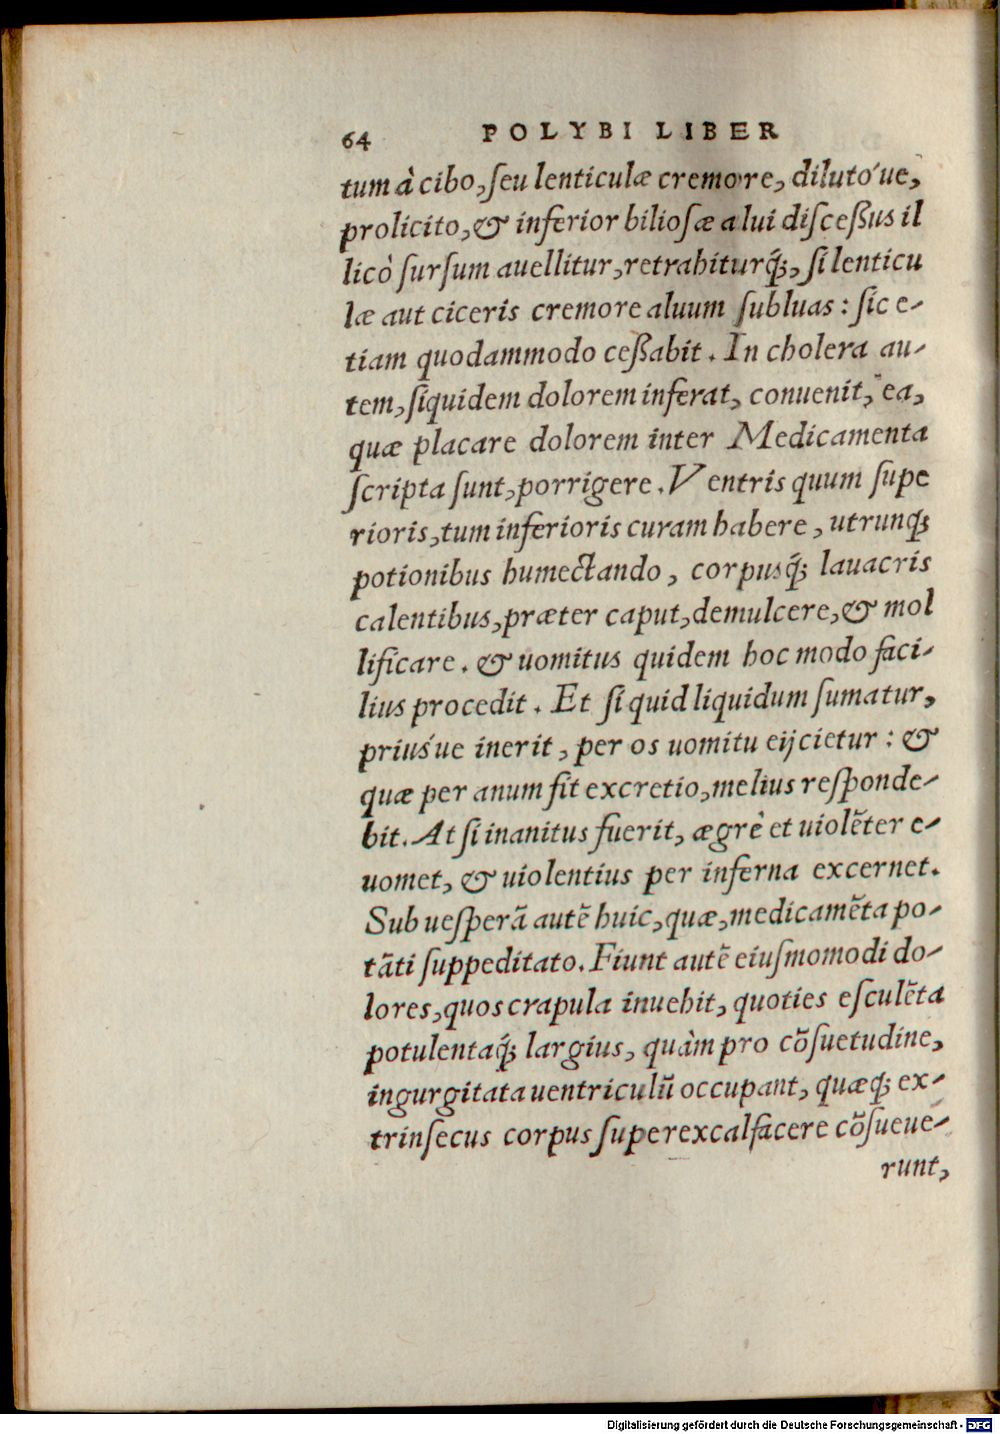 64 POLYBI LIBER
tum à cibo, ſeu lenticulæ cremore, dilutóue,
prolicito, & inferior bilioſæ alui diſceßus il
licò ſurſum auellitur, retrahiturq́;, ſi lenticu
læ aut ciceris cremore aluum ſubluas: ſic e-
tiam quodammodo ceßabit. In cholera au-
tem, ſiquidem dolorem inferat, conuenit, ea,
quæ placare dolorem inter Medicamenta
ſcripta ſunt, porrigere. Ventris quum ſupe
rioris, tum inferioris curam habere, utrunq;
potionibus humectando, corpusq́; lauacris
calentibus, præter caput, demulcere, & mol
lificare. & uomitus quidem hoc modo faci-
lius procedit. Et ſi quid liquidum ſumatur,
priuśue inerit, per os uomitu eijcietur: &
quæ per anum fit excretio, melius reſponde-
bit. At ſi inanitus fuerit, ægrè et uiolēter e-
uomet, & uiolentius per inferna excernet.
Sub ueſperā autē huic, quæ, medicamēta po-
tāti ſuppeditato. Fiunt autē eiuſmomodi do-
lores, quos crapula inuehit, quoties eſculēta
potulentaq́; largius, quàm pro cōſuetudine,
ingurgitata uentriculū occupant, quæq; ex-
trinſecus corpus ſuperexcalfacere cōſueue-
runt,
Digitalisierung gefördert durch die Deutsche Forschungsgemeinschaft - DFG